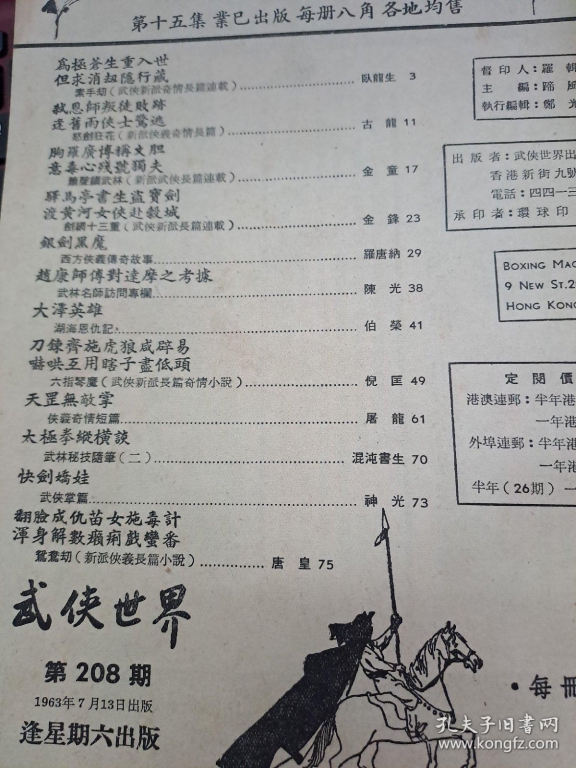 第十五集 業已出版 每册八角 各地均售
爲極蒼生重入世
但求消却隱行藏
素手刧(武俠新派奇情長篇連載)………臥龍生 3
弑恩師叛徒敗跡
逢舊雨俠士驚逃
怒劍狂花(新派俠義奇情長篇)………古龍 11
胸羅廣博稱文胆
意毒心殘號獨夫
簫聲鎭武林(新派武俠長篇連載)………金童 17
驛馬亭書生盜寶劍
渡黄河女俠赴穀城
劍鎭十三重(武俠新派長篇連載)………金鋒 23
銀劍黑魔
西方俠義傳奇故事………羅唐納 29
趙康師傅對達摩之考據
武林名師訪問專欄………陳光 38
大澤英雄
湖海恩仇記………伯榮 41
刀鍊齊施虎狼咸辟易
嚇哄互用瞎子盡低頭
六指琴魔(武俠新派長篇奇情小說)………倪匡 49
天罡無敵掌
俠義奇情短篇………屠龍 61
太極拳縱橫談
武林秘技隨筆(二)………混沌書生 70
快劍嬌娃
武俠掌篇………神光 73
翻臉成仇苗女施毒計
渾身解數癩痢戲蠻番
鴛鴦刧(新派俠義長篇小說)………唐皇 75
武俠世界
第208期
1963年7月13日出版
逢星期六出版
督印人:羅輯
主編:蹄風
執行編輯:鄭光
出版者:武俠世界出
香港新街九號
電話:四四一三
承印者:環球印
BOXING MAG
9 NEW ST.2
HONG KONG
定閱價
港澳連郵:半年港
一年港
外埠連郵:半年港
一年港
半年(26期)一
•每冊
孔夫子旧书网
www.kongfz.com